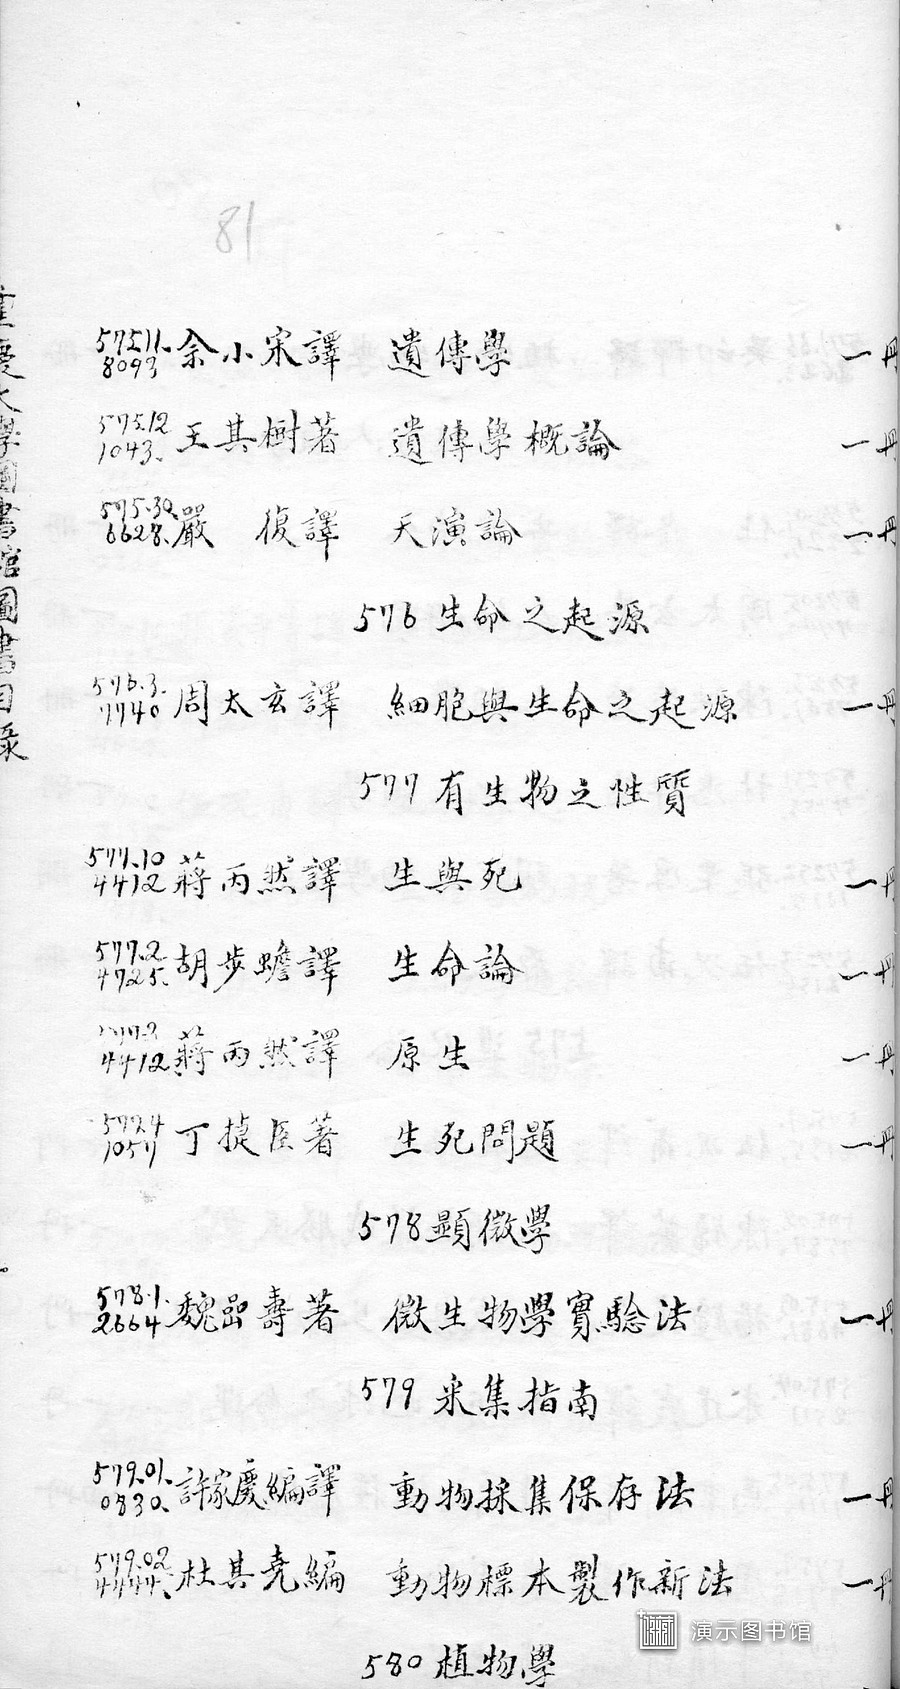 81
重慶大學圖書館圖書目錄
575.11. 8093 余小宋譯 遺傳學 一冊
575.12 1043. 王其樹著 遺傳學概論 一冊
575.30. 6628. 嚴 復譯 天演論 一冊
576 生命之起源
576.3. 7740 周太玄譯 細胞與生命之起源 一冊
577 有生物之性質
577.10 4412 蔣丙然譯 生與死 一冊
577.2 4725. 胡步蟾譯 生命論 一冊
577.3 4412 蔣丙然譯 原生 一冊
577.4 1057 丁捷臣著 生死問題 一冊
578 顯微學
578.1. 2664 魏喦壽著 微生物學實驗法 一冊
579 采集指南
579.01. 0830. 許家慶編譯 動物採集保存法 一冊
579.02 4444. 杜其堯編 動物標本製作新法 一冊
580 植物學
演示图书馆